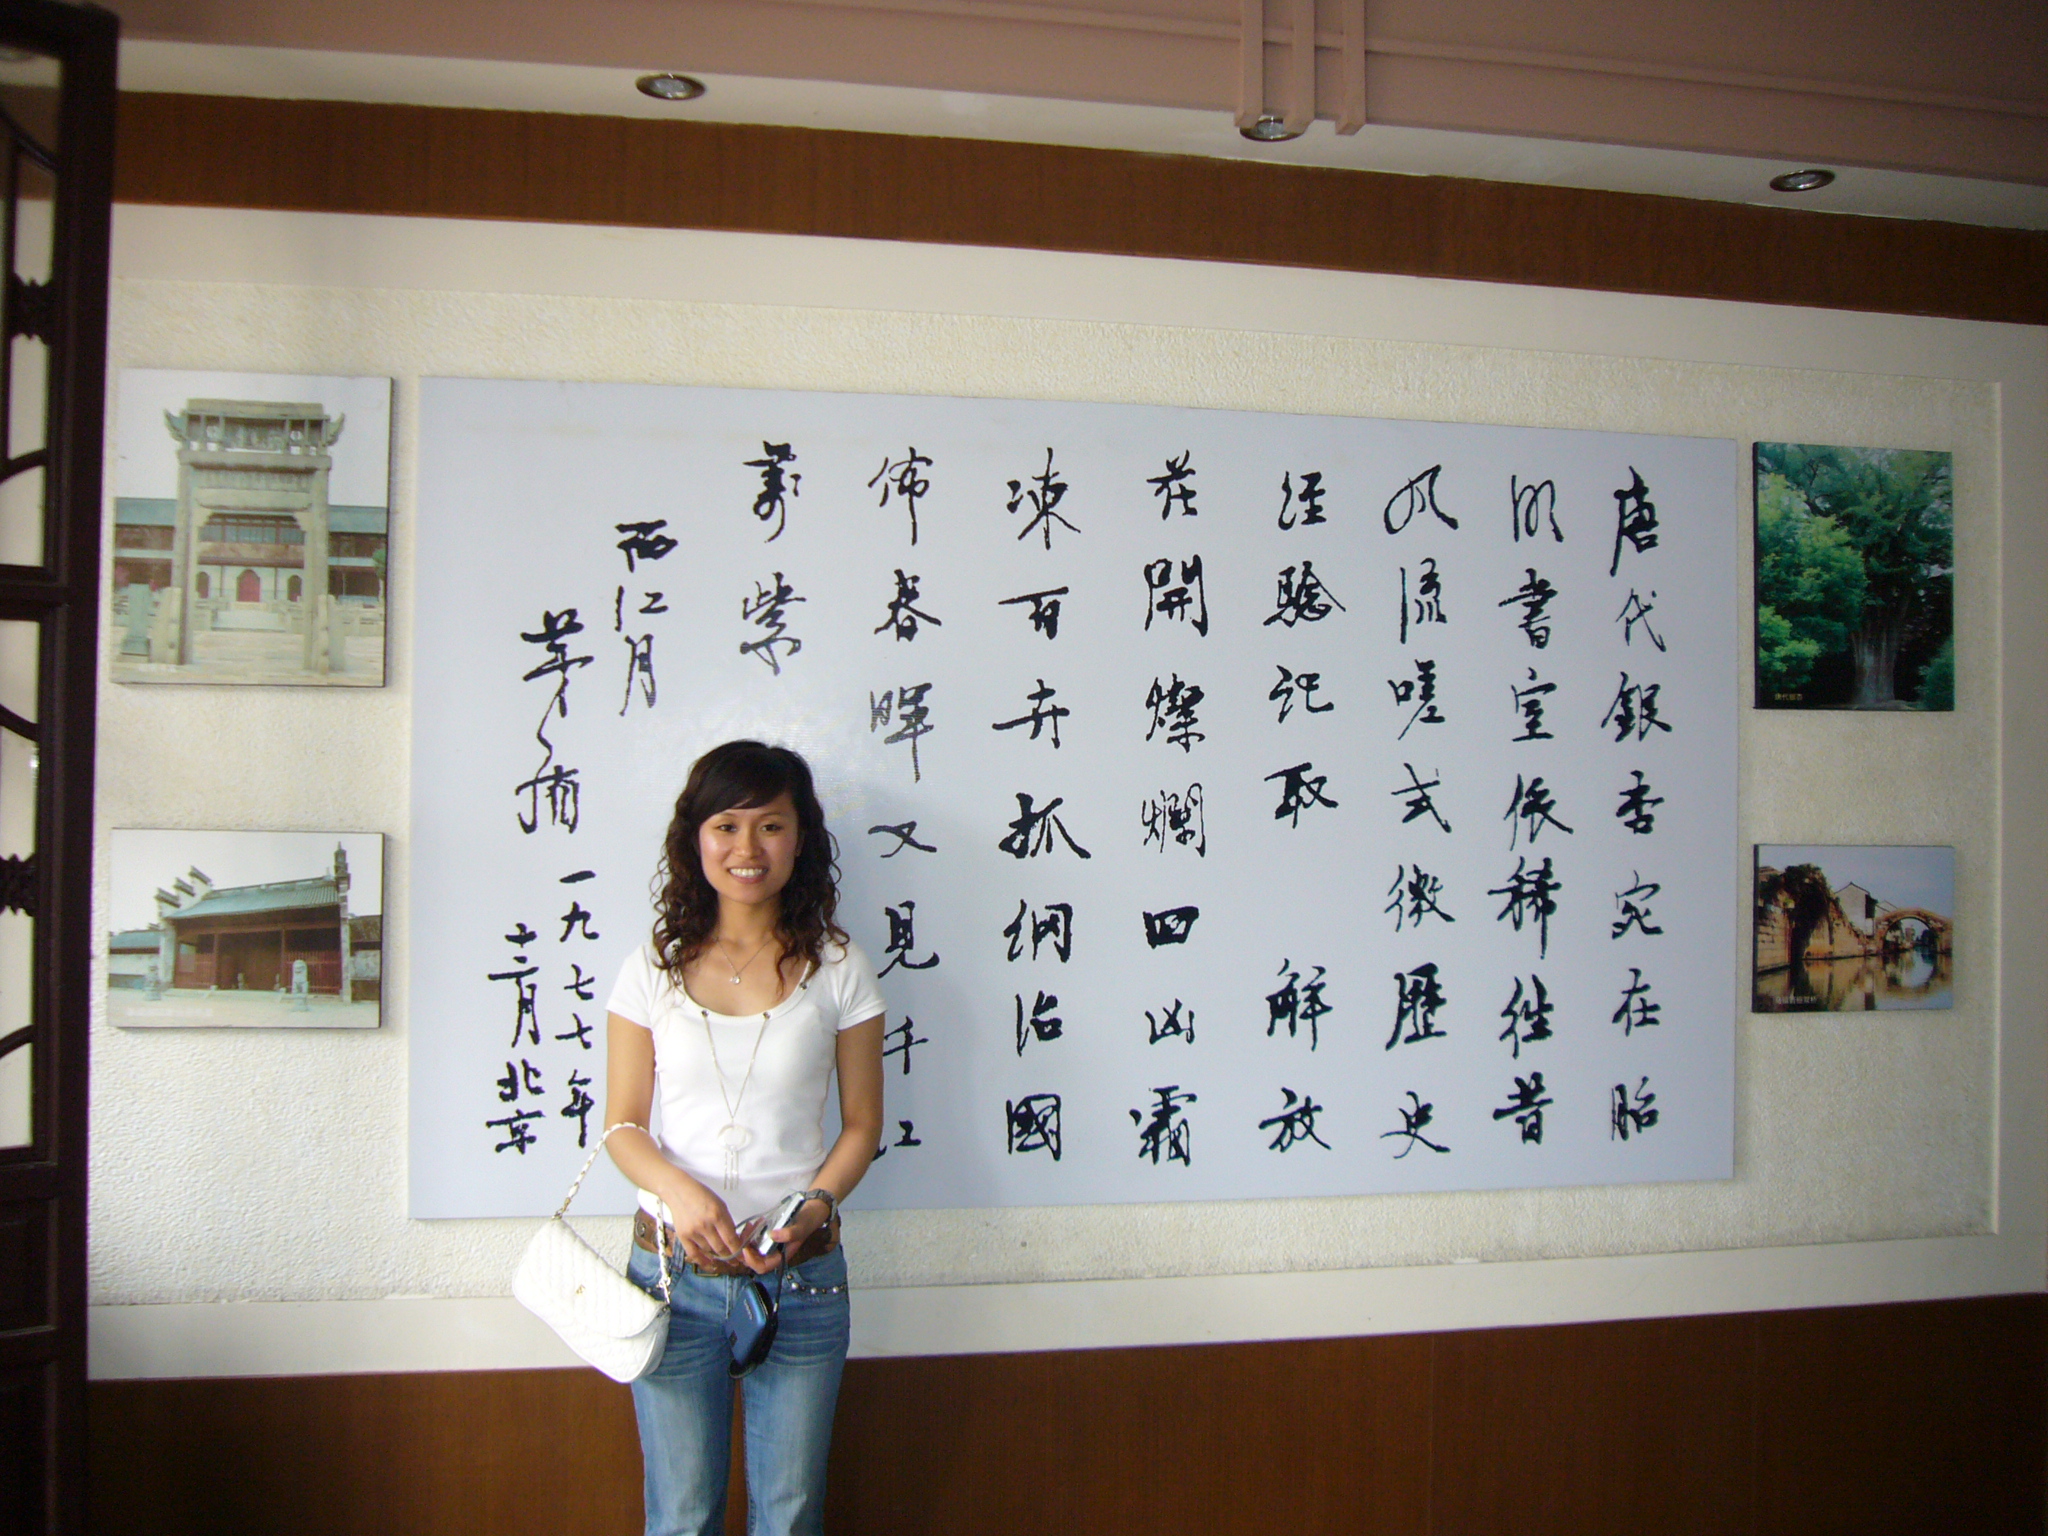 唐代銀杏宛在胎
明書室依稀往昔
风流嗟式微歷史
经驗記取 解放
花開燦爛四凶霜
凍百卉抓綱治國
佈春暉又見千江
萬紫
西江月
茅盾
一九七七年
十二月北京